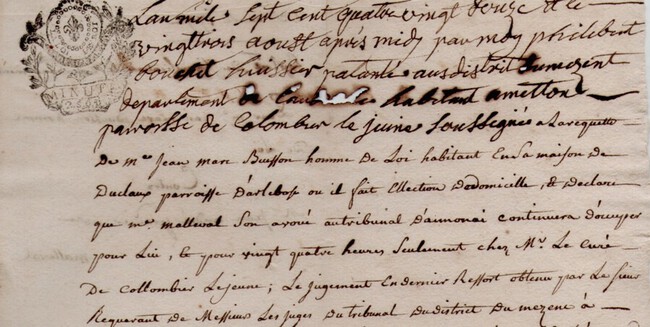 Lan mile Sept Cent quatre vingt douze et le
vingttrois aoust apres midy par moy philibert
bouchet huissier patanté au district Dumezint
departement de habitant amitton
parroisse de Colombier le jeune soussigné a Larequette
De mre jean marc Buisson homme De Loi habitant En Sa maison de
Duclaux parroisse D'arlebosc ou il fait Ellection Dedomicille, & Declare
que mre malleval Son avoué autribunal Dannonai continuera D'occuper
pour Lui, & pour vingt quatre heures Seulement chez Mr. Le Curé
De Collombier Lejeune; Le jugement En dernier Ressort obtenu par Le Sieur
Requerant de Messieurs Les juges du tribunal du district Du mezene à
MINUTE